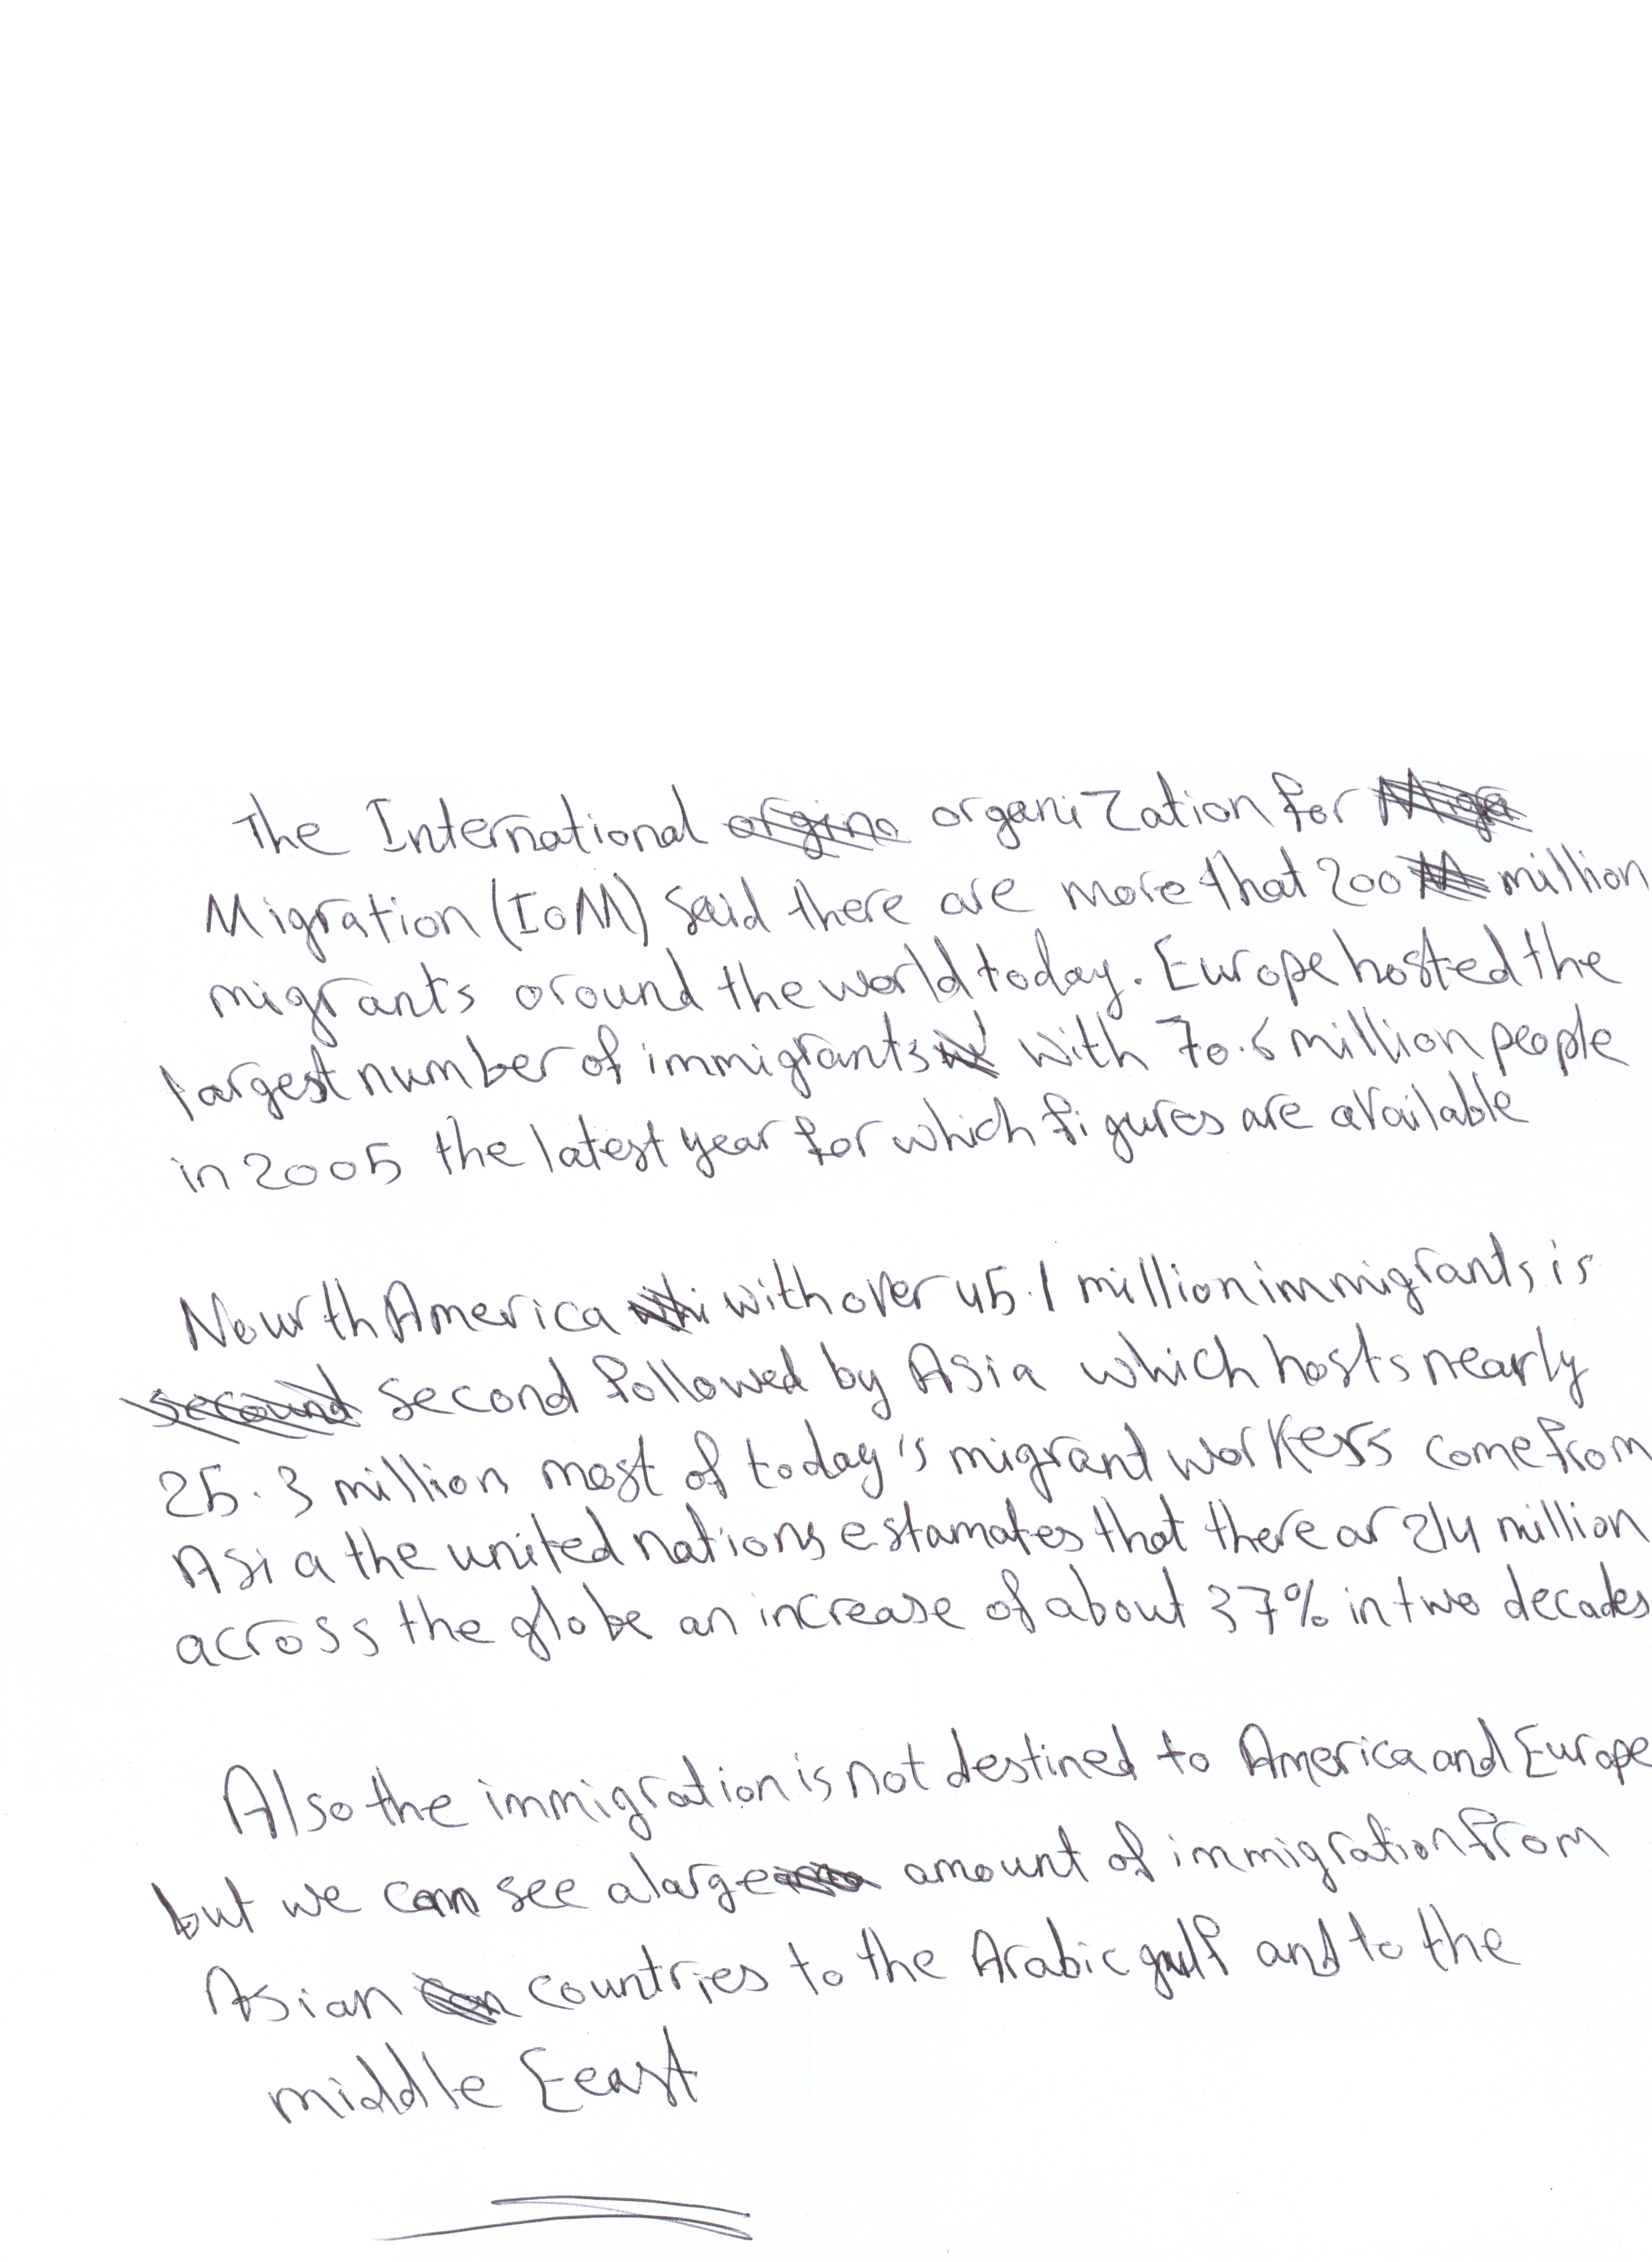 The International organization for
Migration (IoM) said there are more that 200 million
migrants oround the world today. Europe hosted the
largest number of immigrants with 70.6 million people
in 2005 the latest year for which figures are available
Nourth America with over 45.1 million immigrants is
second followed by Asia which hosts nearly
25.3 million most of today's migrant workers come from
Asia the united nations estamates that there ar 214 million
across the globe an increase of about 37% in two decades
Also the immigration is not destined to America and Europe
but we can see a large amount of immigration from
Asian countries to the Arabic gulf and to the
middle Eeast